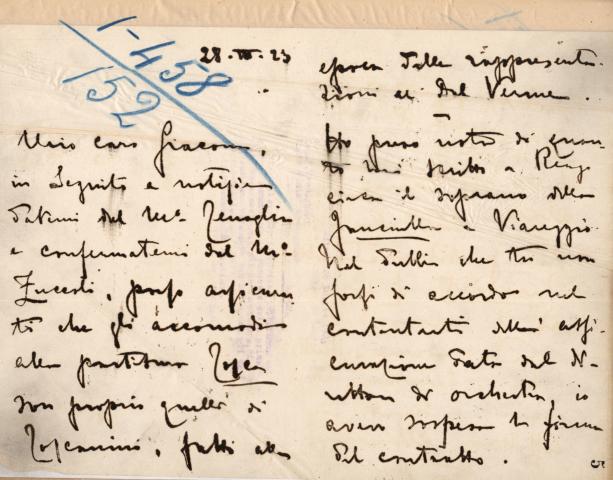 1-458
152
28.III.23
Mio caro Giacomo,
in seguito a notizie
datemi dal Mo. Tenaglia
e confermatemi dal Mo.
Zuccoli, posso assicurar
ti che gli accomodi
alla partitura Tosca
son proprio quelli di
Toscanini, fatti alla
epoca delle rappresenta
zioni al Dal Verme.
Ho preso nota di quan
to mi scritto a
circa il soprano della
Fanciulla a Viareggio.
Nel dubbio che tu non
fossi di accordo nel
contentarti dell' assi
curazione data dal di
rettore di orchestra, io
avevo sospeso la firma
del contratto.